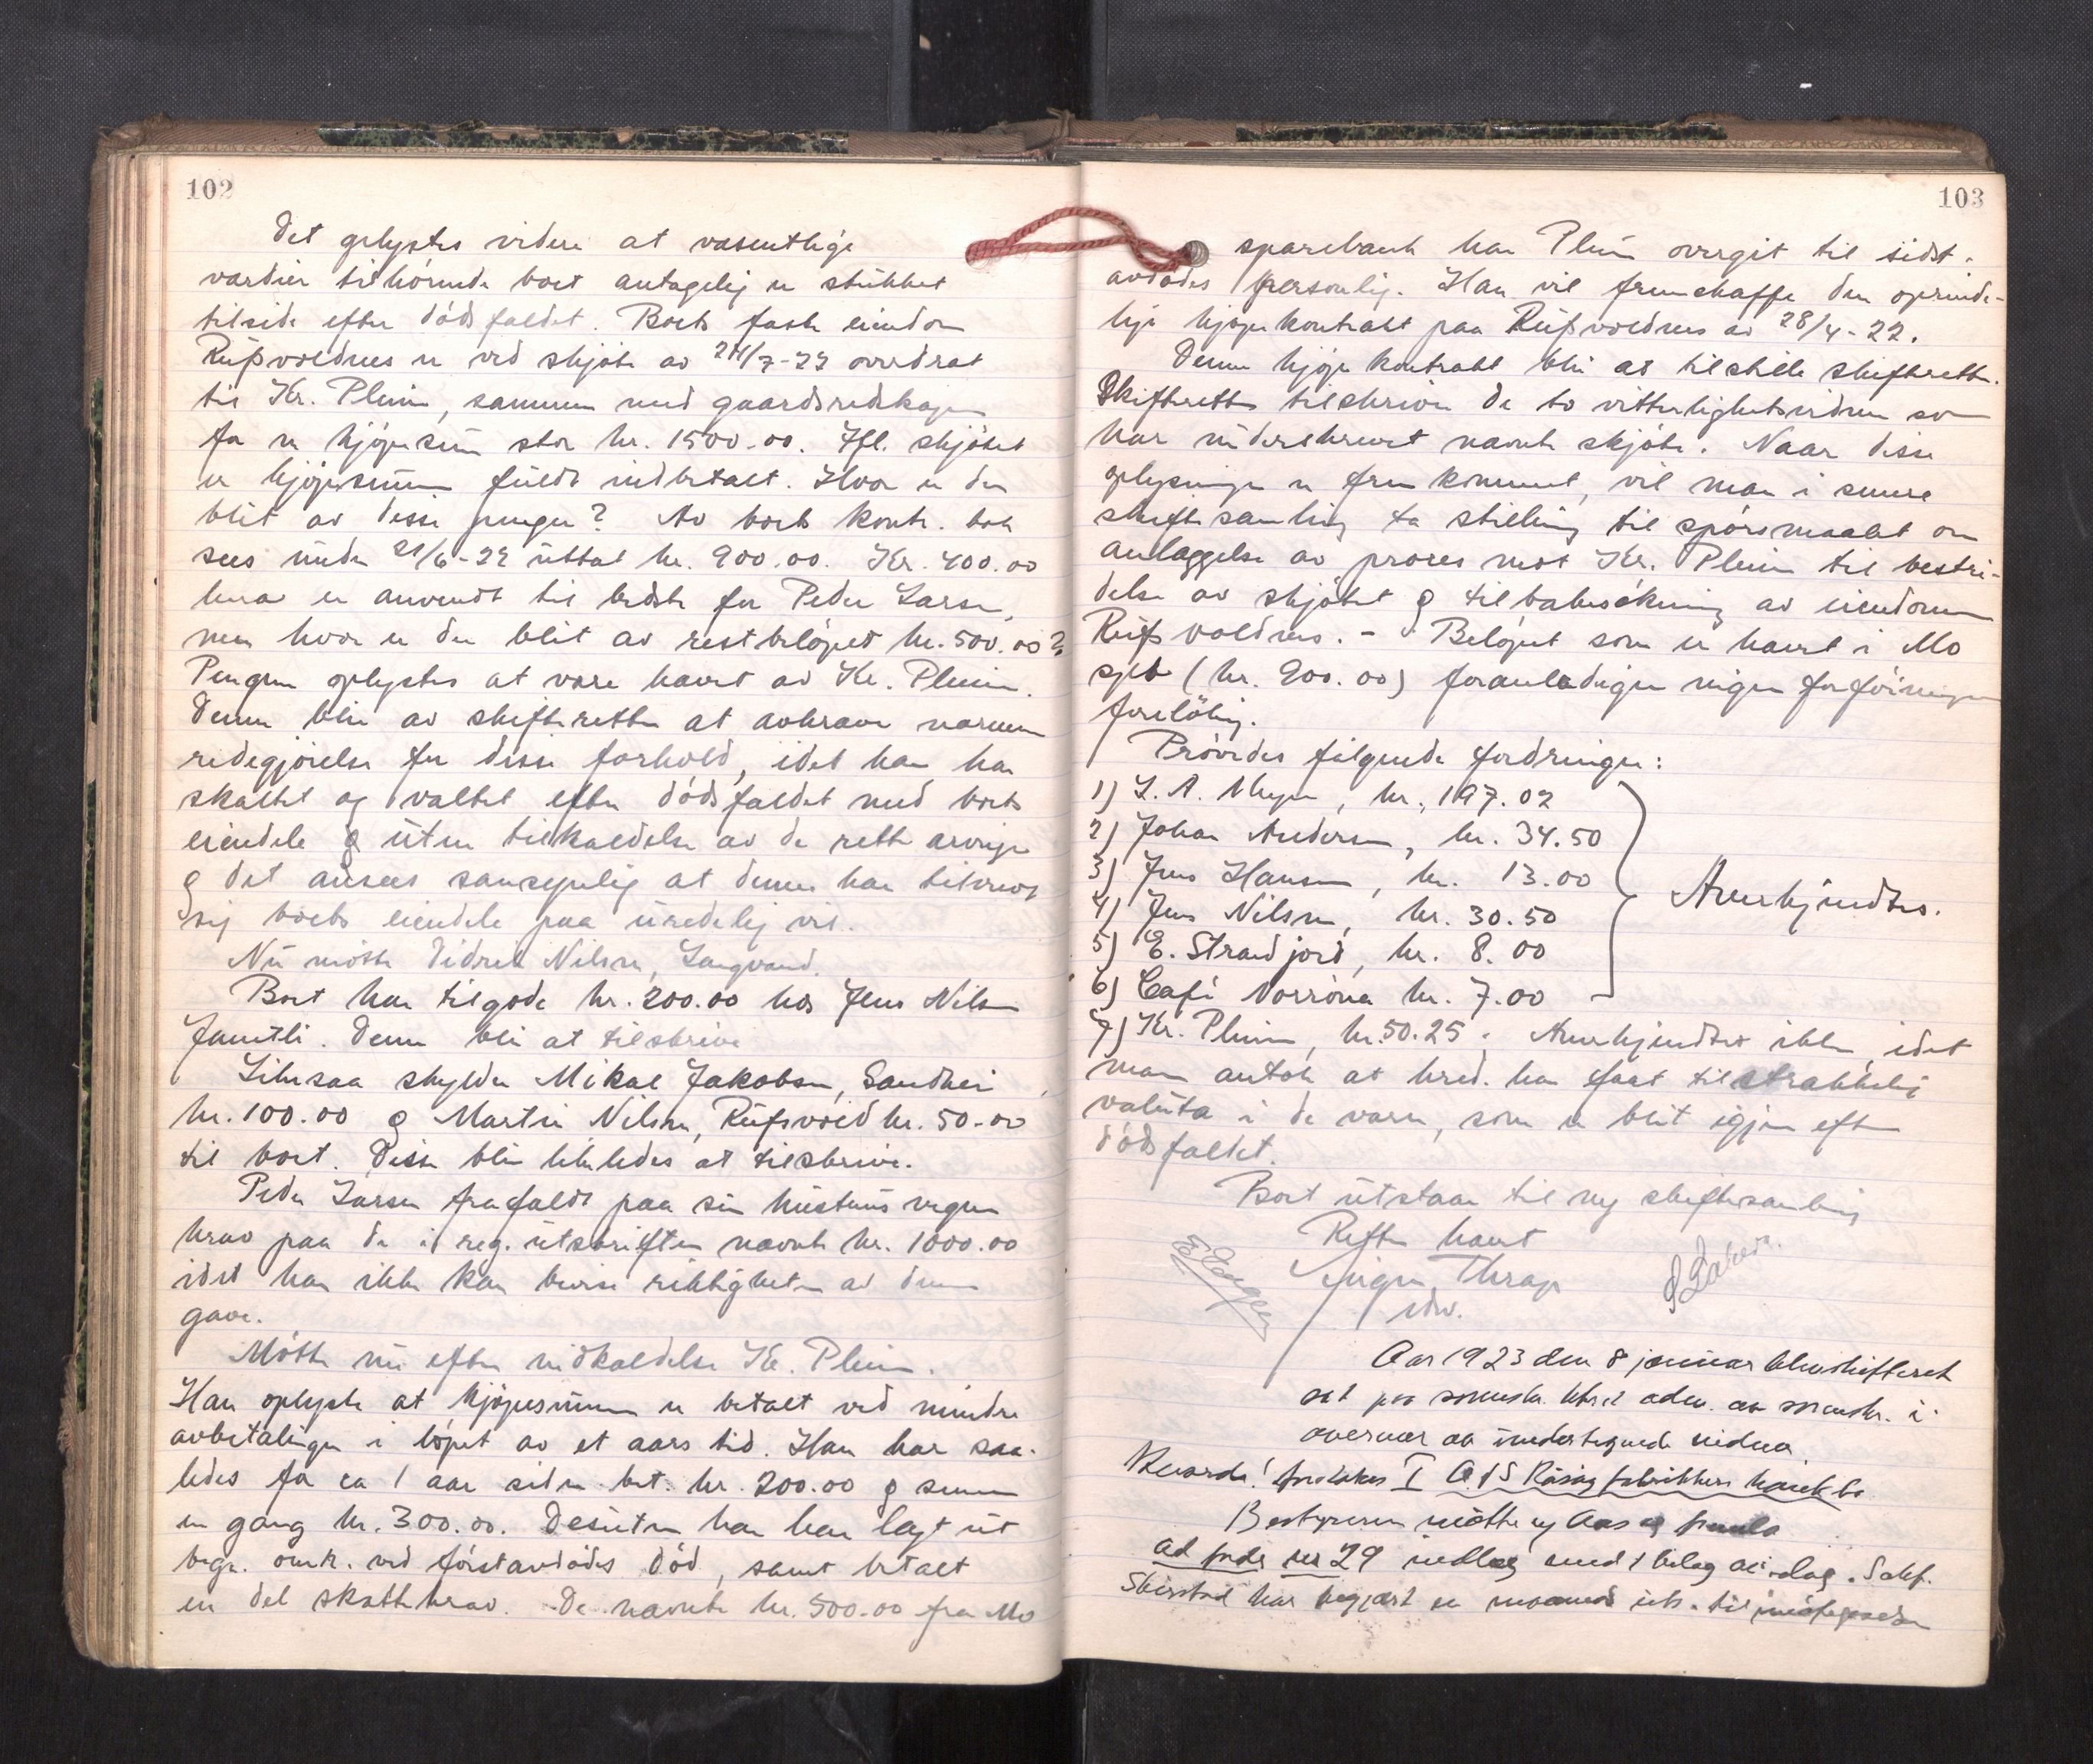 102
Det oplystes videre at væsentlige
værdier tilhørende boet antagelig er stukket
tilside efter dødsfaldet. Boets faste eiendom
Rufsvoldnes er ved skjøte av 24/7-22 overdrat
til Kr. Plein, sammen med gaardsredskapen
for en kjøpesum stor kr. 1500.00. Ifl. skjøtet
er kjøpesummen fuldt indbetalt. Hvor er der
blit av disse penger? Av boets kontr. bok
sees under 21/6-22 uttat kr. 900.00. Kr. 400.00
herav er anvendt til bedste for Peder Larsen,
men hvor er der blit av restbeløpet kr. 500.00?
Pengene oplystes at være hævet av Kr. Plein.
Denne blir av skifteretten at avkræve nærmere
redegjørelse for disse forhold, idet han har
skaltet og valtet efter dødsfaldet med boets
eiendele og uten tilkaldelse av de rette arvinger
og det ansees sansynlig at denne har tilvendt
sig boets eiendele paa uredelig vis.
Nu møtte Didrik Nilsen, Langvand.
Boet har tilgode kr. 200.00 hos Jens Nilsen
Jamtli. Denne blir at tilskrive
Likesaa skylder Mikal Jakobsen, Sandhei
kr. 100.00 og Martin Nilsen, Rufsvold kr. 50.00
til boet. Disse blir likeledes at tilskrive.
Peder Larsen frafaldt paa sin hustrus vegne
krav paa de i reg. utskriften nævnte kr. 1000.00
idet han ikke kan bevise riktigheten av denne
gave.
Møtte nu efter indkaldelse Kr. Plein.
Han oplyste at kjøpesummen er betalt ved mindre
avbetalinger i løpet av et aars tid. Han har saa-
ledes for ca 1 aar siden bet. kr. 200.00 og senere
en gang kr. 300.00. Desuten har han lagt ut
begr. omk. ved førstavdødes død, samt betalt
en del skattekrav. De nævnte kr. 500.00 fra Mo
103
sparebank har Plein overgit til sidst-
avdødes personlig. Han vil fremskaffe den oprinde-
lige kjøpekontrakt paa Rufsvoldnes av 28/4-22.
Denne kjøpekontrakt blir at tilstille skifteretten.
Skifteretten tilskriver de to vitterlighetsvidner som
har underskrevet nævnte skjøte. Naar disse
oplysninger er fremkommet, vil man i senere
skiftesamling ta stilling til spørsmaalet om
anlæggelse av proces mot Kr. Plein til bestri-
delse av skjøtet og tilbakesøkning av eiendommen
Rufsvoldnes. - Beløpet som er hævet i Mo
spb (kr. 900.00) foranlediger ingen forføininger
foreløbig.
Prøvedes følgende fordringer:
1) L. A. Meyer, kr. 197.02
2) Johan Andersen, kr. 34.50
3) Jens Hansen, kr. 13.00
4) Jens Nilsen, kr. 30.50
5) E. Strandjord, kr. 8.00
6) Café Norrøna kr. 7.00
Anerkjendtes.
7) Kr. Plein, kr. 50.25. Anerkjendtes ikke, idet
man antok at kred. har faat tilstrækkelig
valuta i de varer, som er blit igjen efter
dødsfaldet.
Boet utstaar til ny skiftesamling
Retten hævet
Thrap
Aar 1923 den 8 januar blev skifteret
sat paa sorensk. kontoret
overvær av undertegnede vidner
foretokes I A/S Råsag fabrikkers konk.bo
Bestyreren møtte
ad post nr 29 indlæg med 1 bilag
har begjært en maaneds uts. til